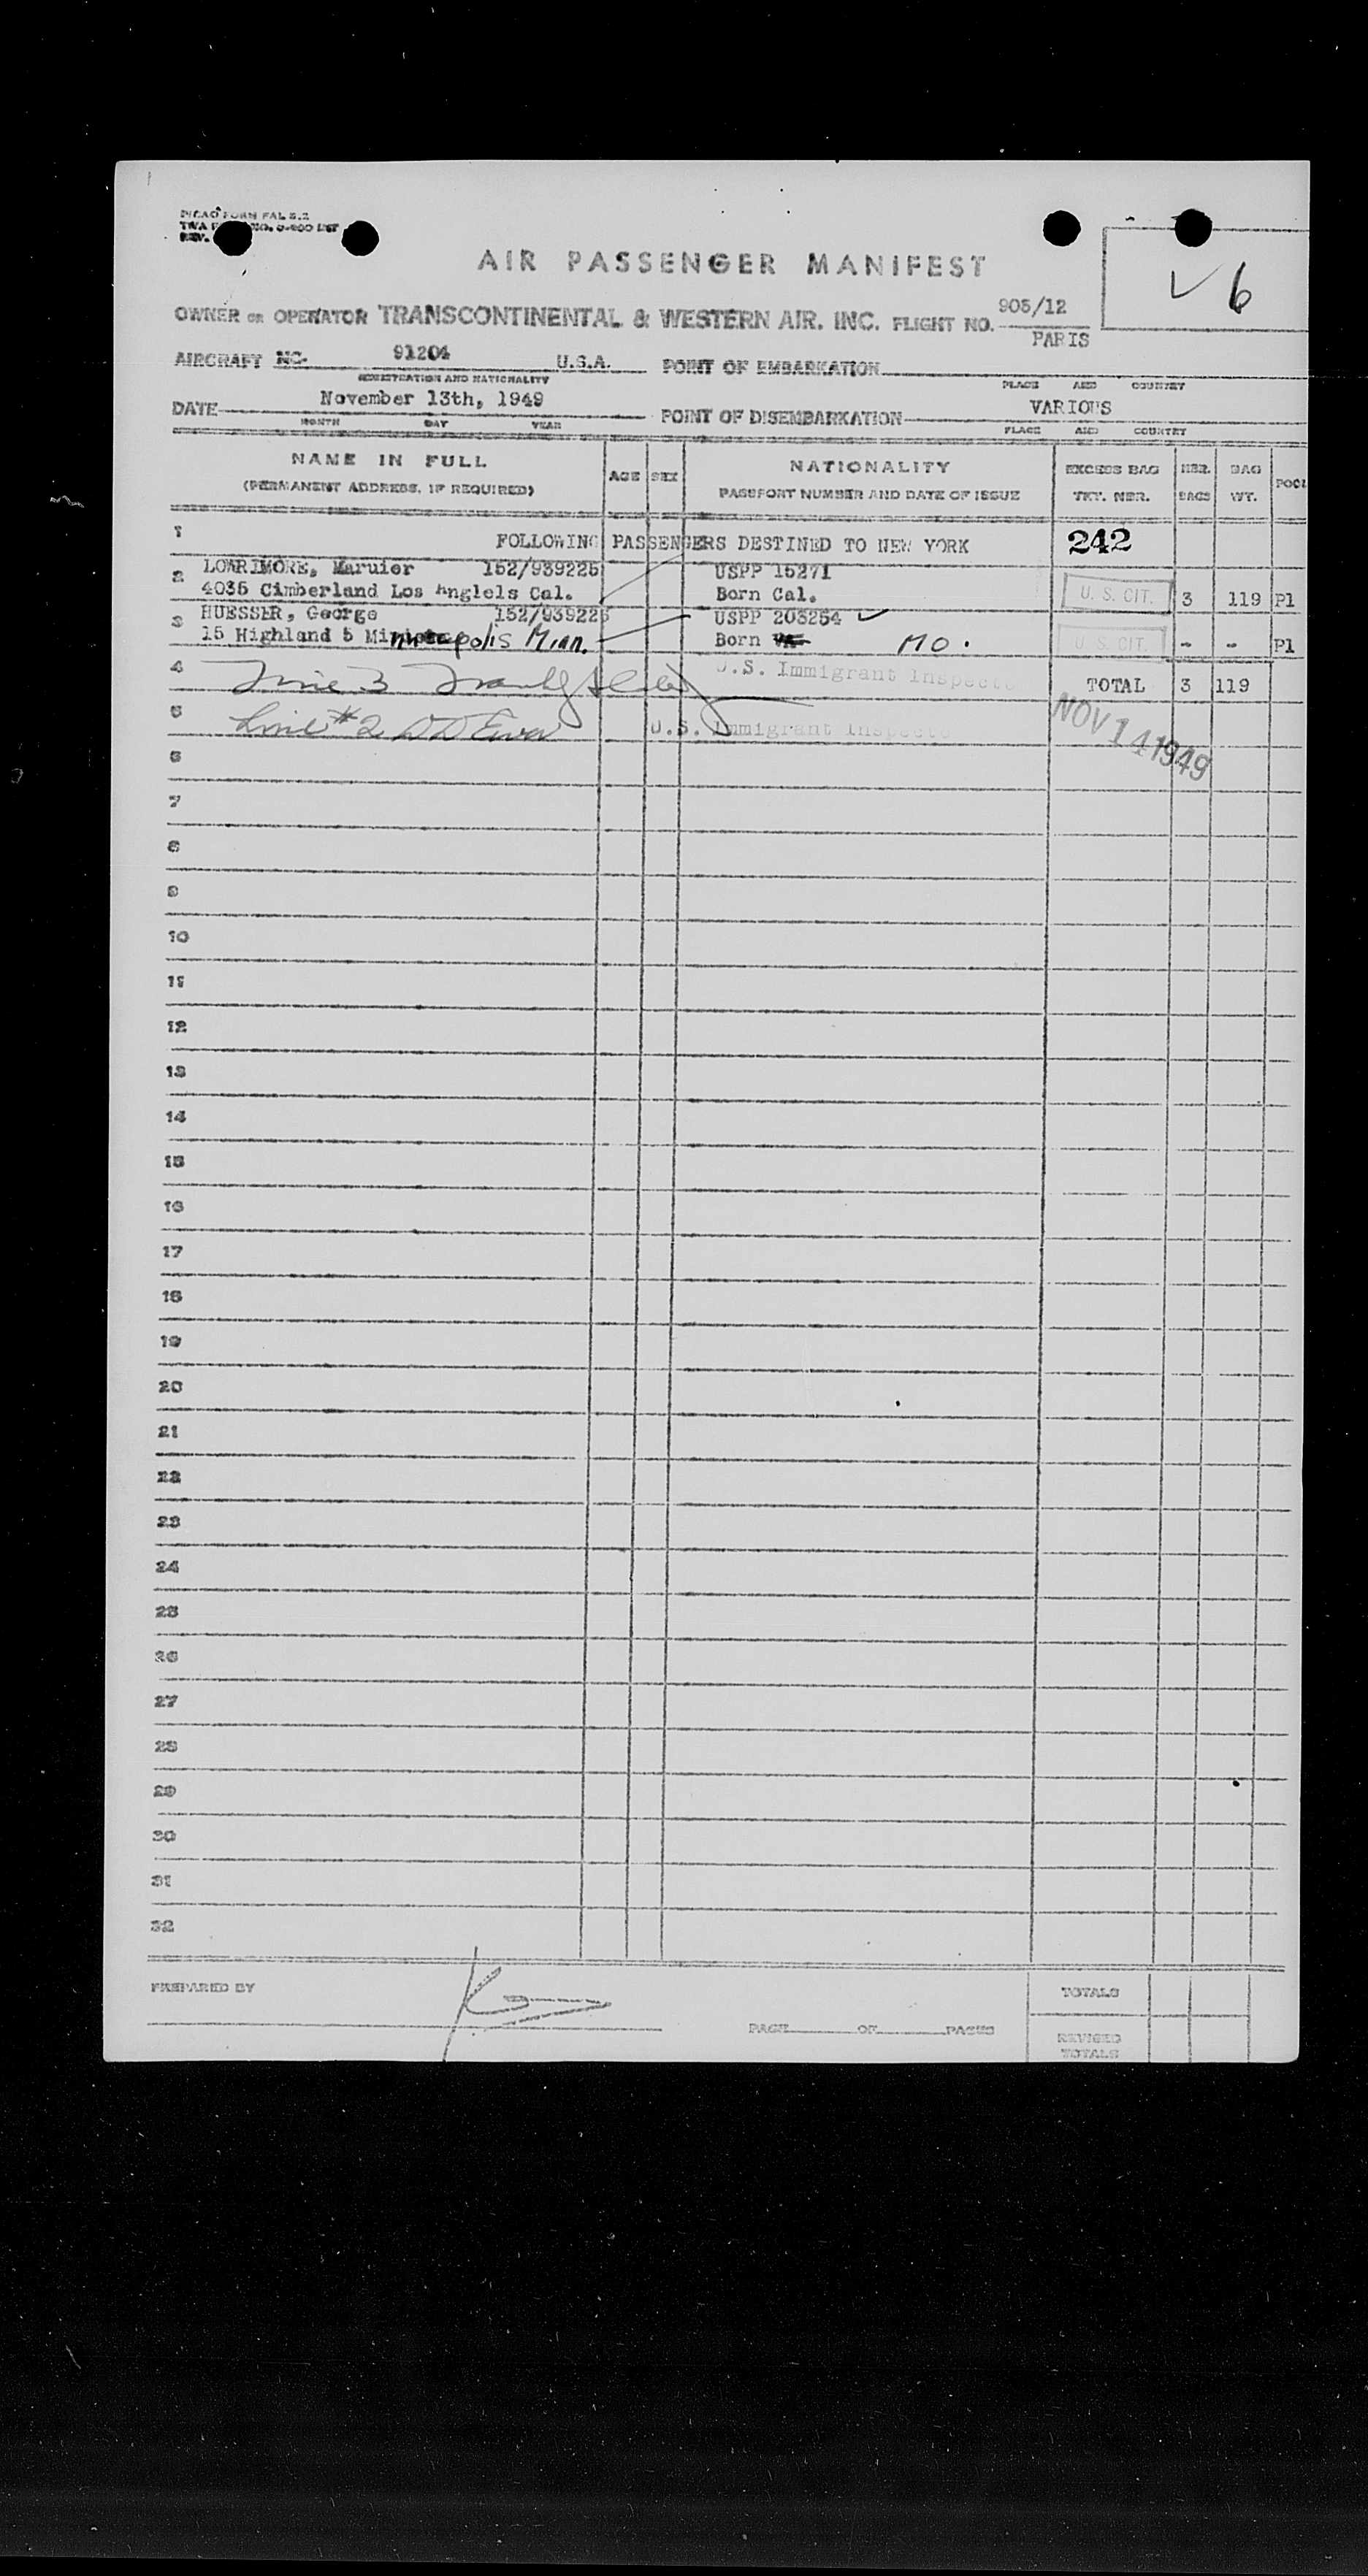 PICAO FORM FAL 5.2
REV.
AIR PASSENGER MANIFEST
✓ 6
OWNER OR OPERATOR TRANSCONTINENTAL & WESTERN AIR. INC. FLIGHT NO. 905/12
AIRCRAFT NC- 91204 U.S.A. POINT OF EMBARKATION PARIS
REGISTRATION AND NATIONALITY PLACE AND COUNTRY
DATE November 13th, 1949 POINT OF DISEMBARKATION VARIOUS
MONTH DAY YEAR PLACE AND COUNTRY
NAME IN FULL AGE SEX NATIONALITY EXCESS BAG NBR. BAG POOL
(PERMANENT ADDRESS, IF REQUIRED) PASSPORT NUMBER AND DATE OF ISSUE TKT. NBR. BAGS WT.
1 FOLLOWING PASSENGERS DESTINED TO NEW YORK 242
LOWRIMORE, Maruier 152/939225 USPP 15271
2 4035 Cimberland Los Anglels Cal. Born Cal. U. S. CIT. 3 119 P1
HUESSER, George 152/939225 USPP 203254 ✓
3 15 Highland 5 Minneapolis Minn. Born MO. U. S. CIT. - - P1
4 Line 3 U.S. Immigrant Inspecto TOTAL 3 119
5 Line #2 U.S. Immigrant Inspecto NOV 14 1949
6
7
8
9
10
11
12
13
14
15
16
17
18
19
20
21
22
23
24
25
26
27
28
29
30
31
32
PREPARED BY TOTALS
PAGE OF PAGES REVISED
TOTALS